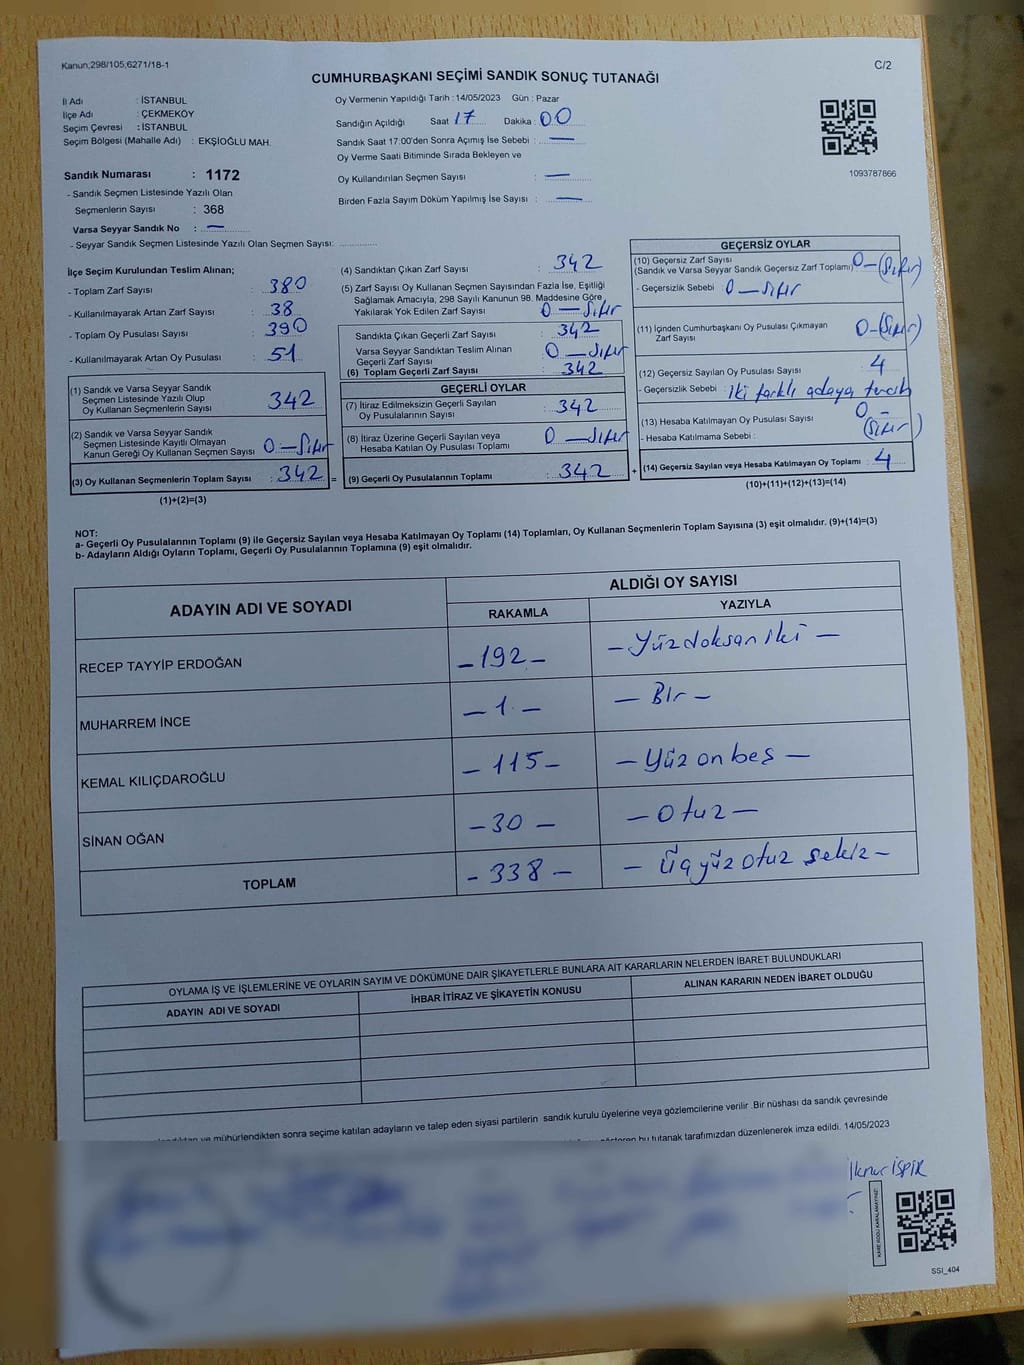 Kanun;298/105;6271/18-1
C/2
CUMHURBAŞKANI SEÇİMİ SANDIK SONUÇ TUTANAĞI
İl Adı : İSTANBUL
İlçe Adı : ÇEKMEKÖY
Seçim Çevresi : İSTANBUL
Seçim Bölgesi (Mahalle Adı) : EKŞİOĞLU MAH.
Sandık Numarası : 1172
- Sandık Seçmen Listesinde Yazılı Olan
Seçmenlerin Sayısı : 368
Varsa Seyyar Sandık No : —
- Seyyar Sandık Seçmen Listesinde Yazılı Olan Seçmen Sayısı: ..............
Oy Vermenin Yapıldığı Tarih : 14/05/2023 Gün : Pazar
Sandığın Açıldığı Saat 17 Dakika : 00
Sandık Saat 17:00'den Sonra Açımış İse Sebebi : —
Oy Verme Saati Bitiminde Sırada Bekleyen ve
Oy Kullandırılan Seçmen Sayısı : —
Birden Fazla Sayım Döküm Yapılmış İse Sayısı : —
1093787866
İlçe Seçim Kurulundan Teslim Alınan;
- Toplam Zarf Sayısı : 380
- Kullanılmayarak Artan Zarf Sayısı : 38
- Toplam Oy Pusulası Sayısı : 390
- Kullanılmayarak Artan Oy Pusulası : 51
(1) Sandık ve Varsa Seyyar Sandık
Seçmen Listesinde Yazılı Olup
Oy Kullanan Seçmenlerin Sayısı : 342
(2) Sandık ve Varsa Seyyar Sandık
Seçmen Listesinde Kayıtlı Olmayan
Kanun Gereği Oy Kullanan Seçmen Sayısı : 0 — Sıfır
(3) Oy Kullanan Seçmenlerin Toplam Sayısı : 342 =
(1)+(2)=(3)
(4) Sandıktan Çıkan Zarf Sayısı : 342
(5) Zarf Sayısı Oy Kullanan Seçmen Sayısından Fazla İse, Eşitliği
Sağlamak Amacıyla, 298 Sayılı Kanunun 98. Maddesine Göre
Yakılarak Yok Edilen Zarf Sayısı : 0 — Sıfır
Sandıkta Çıkan Geçerli Zarf Sayısı : 342
Varsa Seyyar Sandıktan Teslim Alınan
Geçerli Zarf Sayısı : 0 — Sıfır
(6) Toplam Geçerli Zarf Sayısı : 342
GEÇERLİ OYLAR
(7) İtiraz Edilmeksizin Geçerli Sayılan
Oy Pusulalarının Sayısı : 342
(8) İtiraz Üzerine Geçerli Sayılan veya
Hesaba Katılan Oy Pusulası Toplamı : 0 — Sıfır
(9) Geçerli Oy Pusulalarının Toplamı : 342 +
GEÇERSİZ OYLAR
(10) Geçersiz Zarf Sayısı
(Sandık ve Varsa Seyyar Sandık Geçersiz Zarf Toplamı) : 0 — (Sıfır)
- Geçersizlik Sebebi : 0 — Sıfır
(11) İçinden Cumhurbaşkanı Oy Pusulası Çıkmayan
Zarf Sayısı : 0 - (Sıfır)
(12) Geçersiz Sayılan Oy Pusulası Sayısı : 4
- Geçersizlik Sebebi : İki farklı adaya tercih
(13) Hesaba Katılmayan Oy Pusulası Sayısı : 0 - (Sıfır)
- Hesaba Katılmama Sebebi :
(14) Geçersiz Sayılan veya Hesaba Katılmayan Oy Toplamı : 4
(10)+(11)+(12)+(13)=(14)
NOT:
a- Geçerli Oy Pusulalarının Toplamı (9) ile Geçersiz Sayılan veya Hesaba Katılmayan Oy Toplamı (14) Toplamları, Oy Kullanan Seçmenlerin Toplam Sayısına (3) eşit olmalıdır. (9)+(14)=(3)
b- Adayların Aldığı Oyların Toplamı, Geçerli Oy Pusulalarının Toplamına (9) eşit olmalıdır.
ADAYIN ADI VE SOYADI
ALDIĞI OY SAYISI
RAKAMLA
YAZIYLA
RECEP TAYYİP ERDOĞAN -192- -Yüzdoksan iki-
MUHARREM İNCE -1- -Bir-
KEMAL KILIÇDAROĞLU -115- -Yüz onbeş-
SİNAN OĞAN -30- -Otuz-
TOPLAM -338- -Üçyüz otuz sekiz-
OYLAMA İŞ VE İŞLEMLERİNE VE OYLARIN SAYIM VE DÖKÜMÜNE DAİR ŞİKAYETLERLE BUNLARA AİT KARARLARIN NELERDEN İBARET BULUNDUKLARI
ADAYIN ADI VE SOYADI
İHBAR İTİRAZ VE ŞİKAYETİN KONUSU
ALINAN KARARIN NEDEN İBARET OLDUĞU
ve mühürlendikten sonra seçime katılan adayların ve talep eden siyasi partilerin sandık kurulu üyelerine veya gözlemcilerine verilir .Bir nüshası da sandık çevresinde
bu tutanak tarafımızdan düzenlenerek imza edildi. 14/05/2023
İlknur İŞPİR
KARE KODU KARALAMAYINIZ!
SSI_404